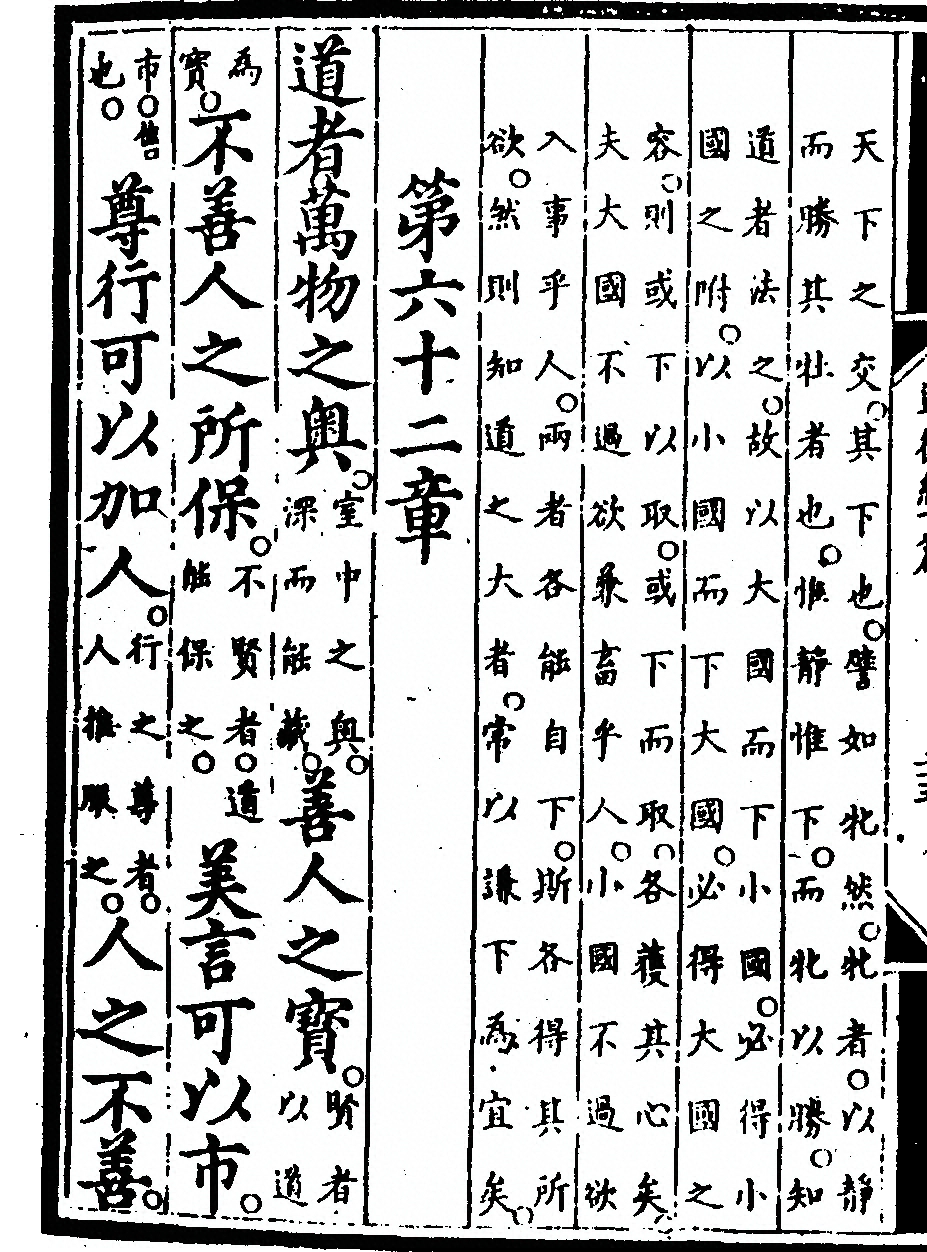 天下之交。其下也。譬如牝然。牝者。以靜
而勝其牡者也。惟靜惟下。而牝以勝。知
道者法之。故以大國而下小國。必得小
國之附。以小國而下大國。必得大國之
容。則或下以取。或下而取。各獲其心矣。
夫大國不過欲兼畜乎人。小國不過欲
入事乎人。兩者各能自下。斯各得其所
欲。然則知道之大者。常以謙下為宜矣。
第六十二章
道者萬物之奧。室中之奧。深而能藏。善人之寶。賢者以道
為寶。不善人之所保。不賢者。道能保之。美言可以市。
市。售也。尊行可以加人。行之尊者。人推服之。人之不善。